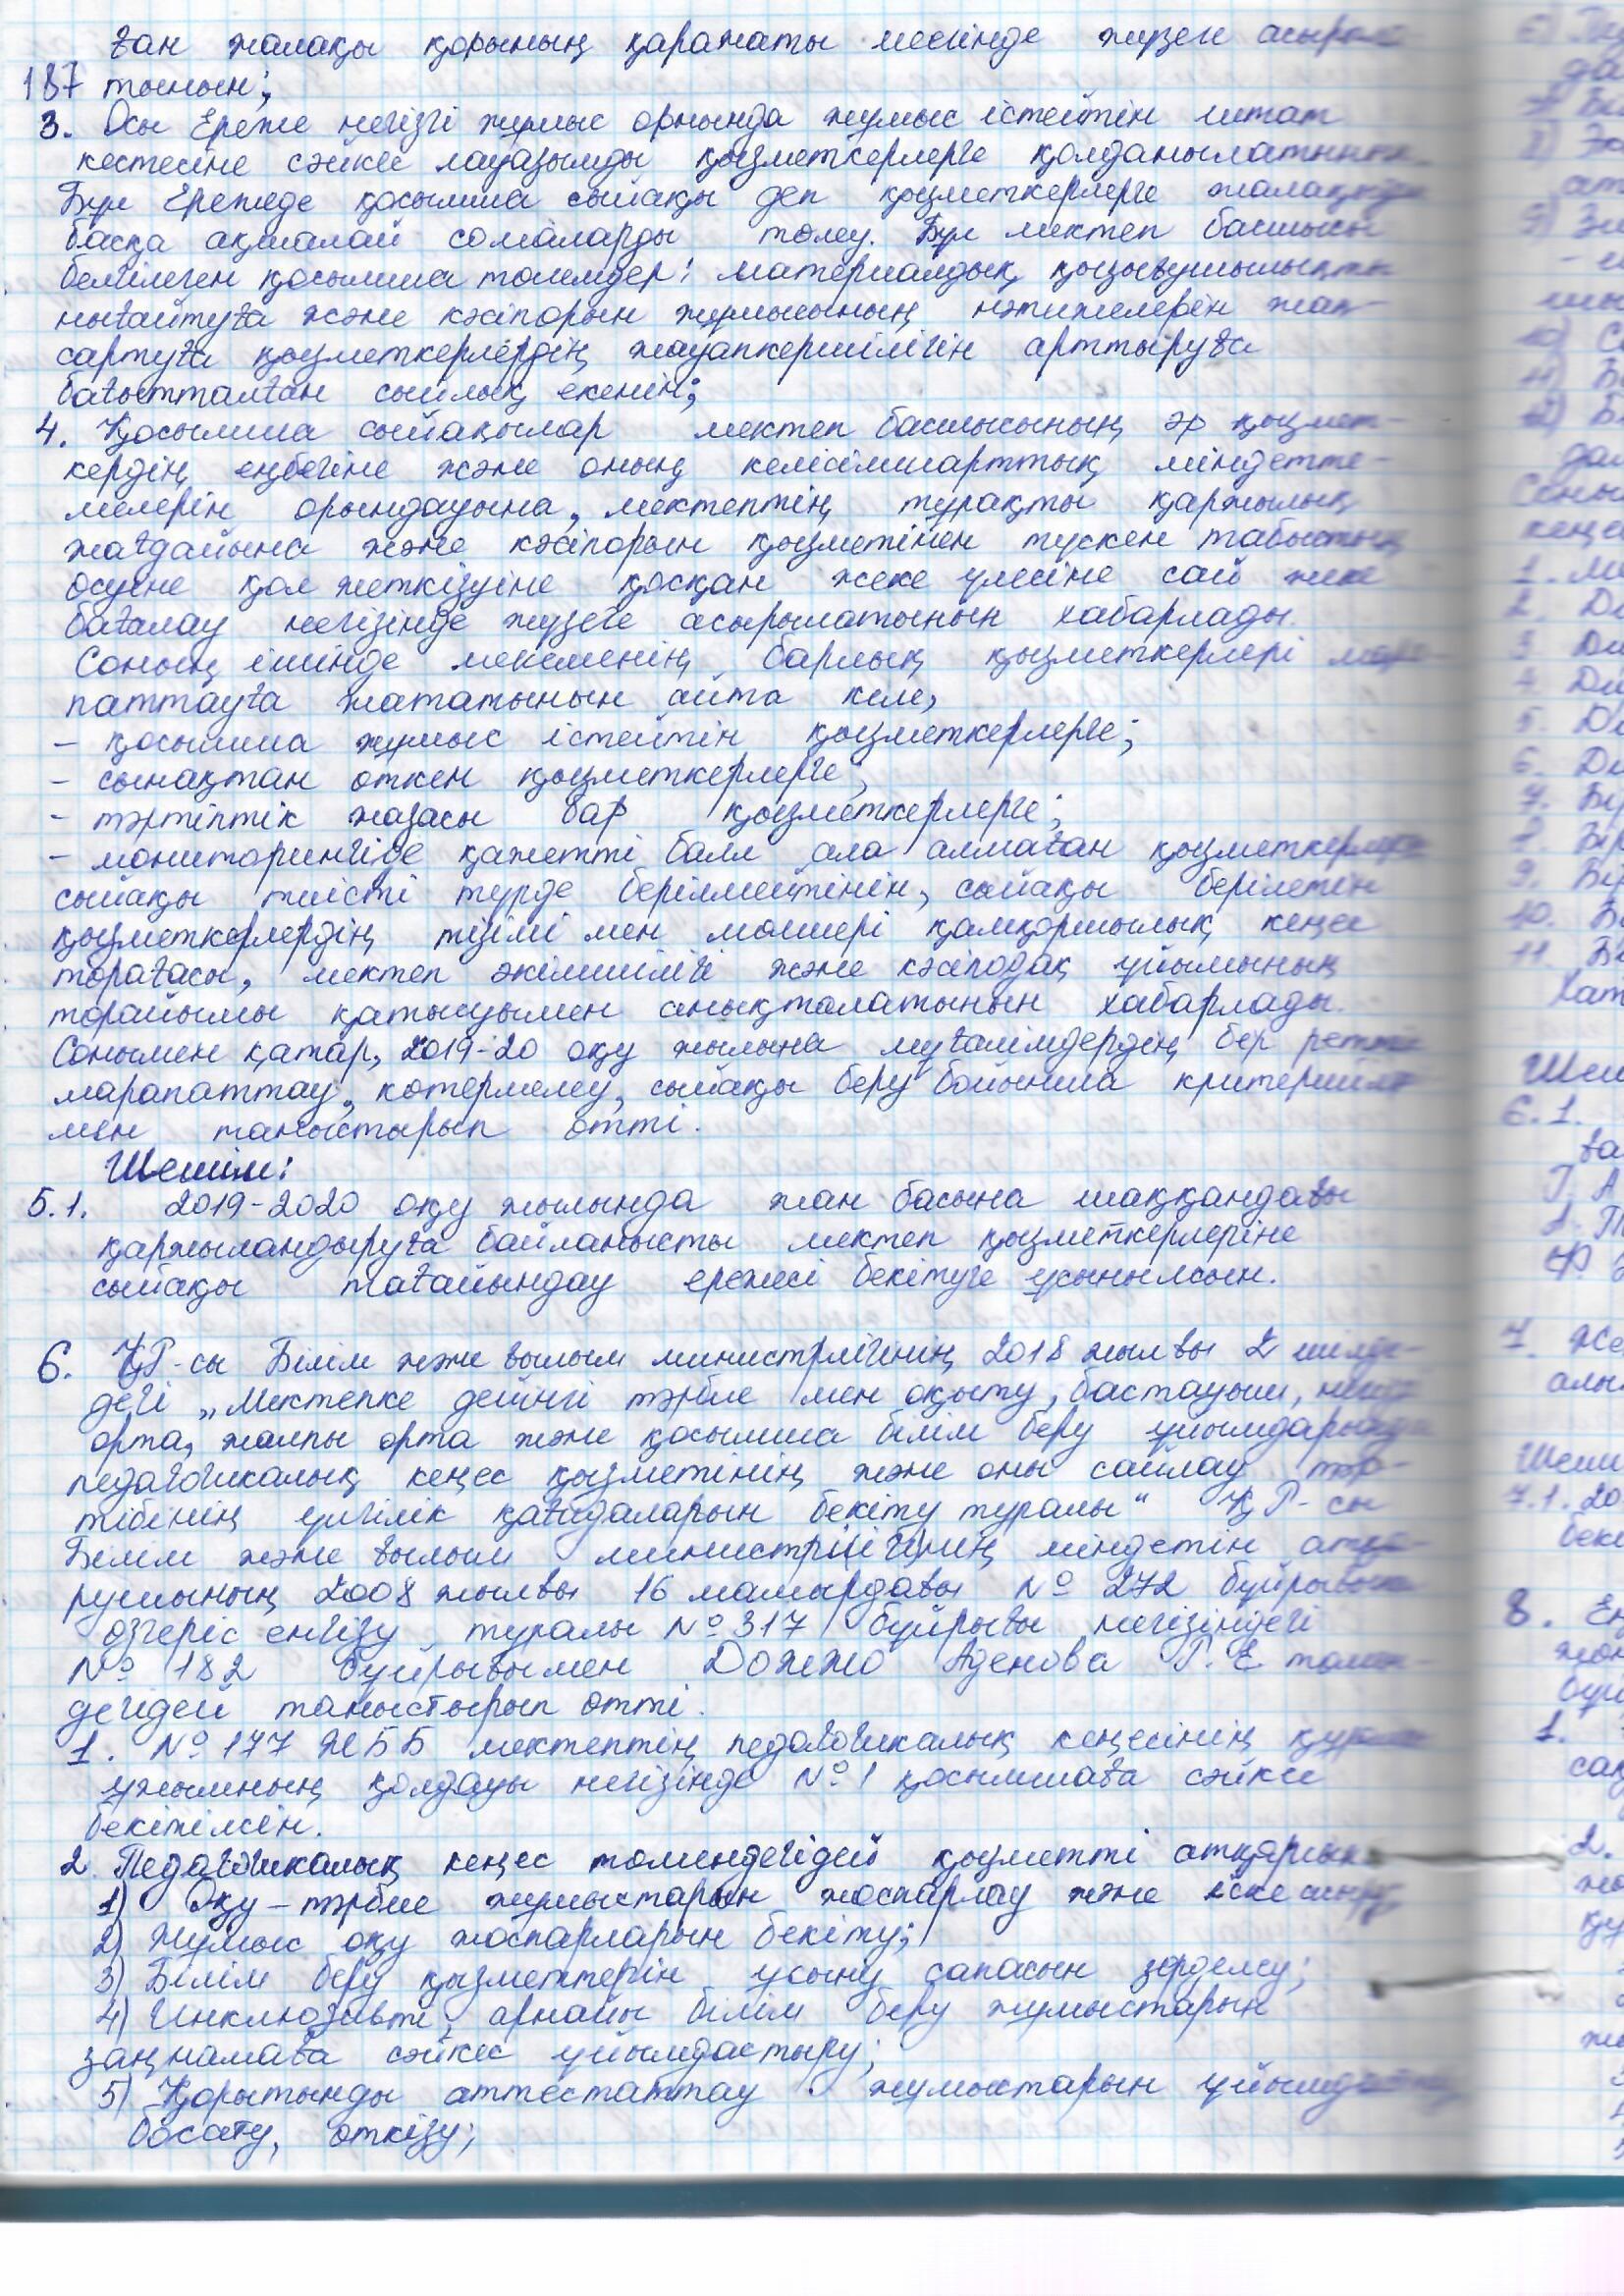 ған жалақы қорының қаражаты есебінде жүзеге асырыла
187 тынын;
3. Осы Ереже негізгі жұмыс орнында жұмыс істейтін штат
кестесіне сәйкес лауазымды қызметкерлерге қолданылатынын
Бұл Ережеде қосымша сыйақы деп қызметкерлерге жалақыдан
басқа ақшалай сомаларды төлеу. Бұл мектеп басшысы
белгілеген қосымша төлемдер: материалдық қызығушылықты
нығайтуға және кәсіпорын жұмысының нәтижелерін жақ-
сартуға қызметкерлердің жауапкершілігін арттыруға
бағытталған сыйлық екенін;
4. Қосымша сыйақылар мектеп басшысының әр қызмет-
кердің еңбегіне және оның келісімшарттық міндетте-
мелерін орындауына, мектептің тұрақты қаржылық
жағдайына және кәсіпорын қызметінен түскен табыстың
өсуіне қол жеткізуіне қосқан жеке үлесіне сай жеке
бағалау негізінде жүзеге асырылатынын хабарлады.
Соның ішінде мекеменің барлық қызметкерлері мара-
паттауға жататынын айта келе,
- қосымша жұмыс істейтін қызметкерлерге;
- сынақтан өткен қызметкерлерге;
- тәртіптік жазасы бар қызметкерлерге;
- мониторингіде қажетті балл ала алмаған қызметкерлерге
сыйақы тиісті түрде берілмейтінін, сыйақы берілетін
қызметкерлердің тізімі мен мөлшері қамқоршылық кеңес
төрағасы, мектеп әкімшілігі және кәсіподақ ұйымының
төрайымы қатысуымен анықталатынын хабарлады.
Сонымен қатар, 2019-20 оқу жылына мұғалімдердің бер ретті
марапаттау, көтермелеу, сыйақы беру бойынша критерийлер
мен таныстырып өтті.
Шешім:
5.1. 2019-2020 оқу жылында жан басына шаққандағы
қаржыландыруға байланысты мектеп қызметкерлеріне
сыйақы тағайындау ережесі бекітуге ұсынылсын.
6. ҚР-сы Білім және ғылым министрлігінің 2018 жылғы 2 шілде-
дегі „Мектепке дейінгі тәрбие мен оқыту, бастауыш, негізгі
орта, жалпы орта және қосымша білім беру ұйымдарында
педагогикалық кеңес қызметінің және оны сайлау тәр-
тібінің үлгілік қағидаларын бекіту туралы" ҚР-сы
Білім және ғылым министрі(лігі)нің міндетін атқа-
рушының 2008 жылғы 16 мамырдағы №272 бұйрығына
өзгеріс енгізу туралы №317 бұйрығы негізіндегі
№ 182 бұйрығымен ДОІЖО Аденова Р. Е төмен-
дегідей таныстырып өтті.
1. №177 ЖББ мектептің педагогикалық кеңесінің құрамы
ұжымның қолдауы негізінде №1 қосымшаға сәйкес
бекітілсін.
2. Педагогикалық кеңес төмендегідей қызметті атқарсын
1) Оқу-тәрбие жұмыстарын жоспарлау және іске асыру;
2) Жұмыс оқу жоспарларын бекіту;
3) Білім беру қызметтерін ұсыну сапасын зерделеу;
4) Инклюзивті, арнайы білім беру жұмыстарын
заңнамаға сәйкес ұйымдастыру;
5) Қорытынды аттестаттау жұмыстарын ұйымдастыру,
босату, өткізу;